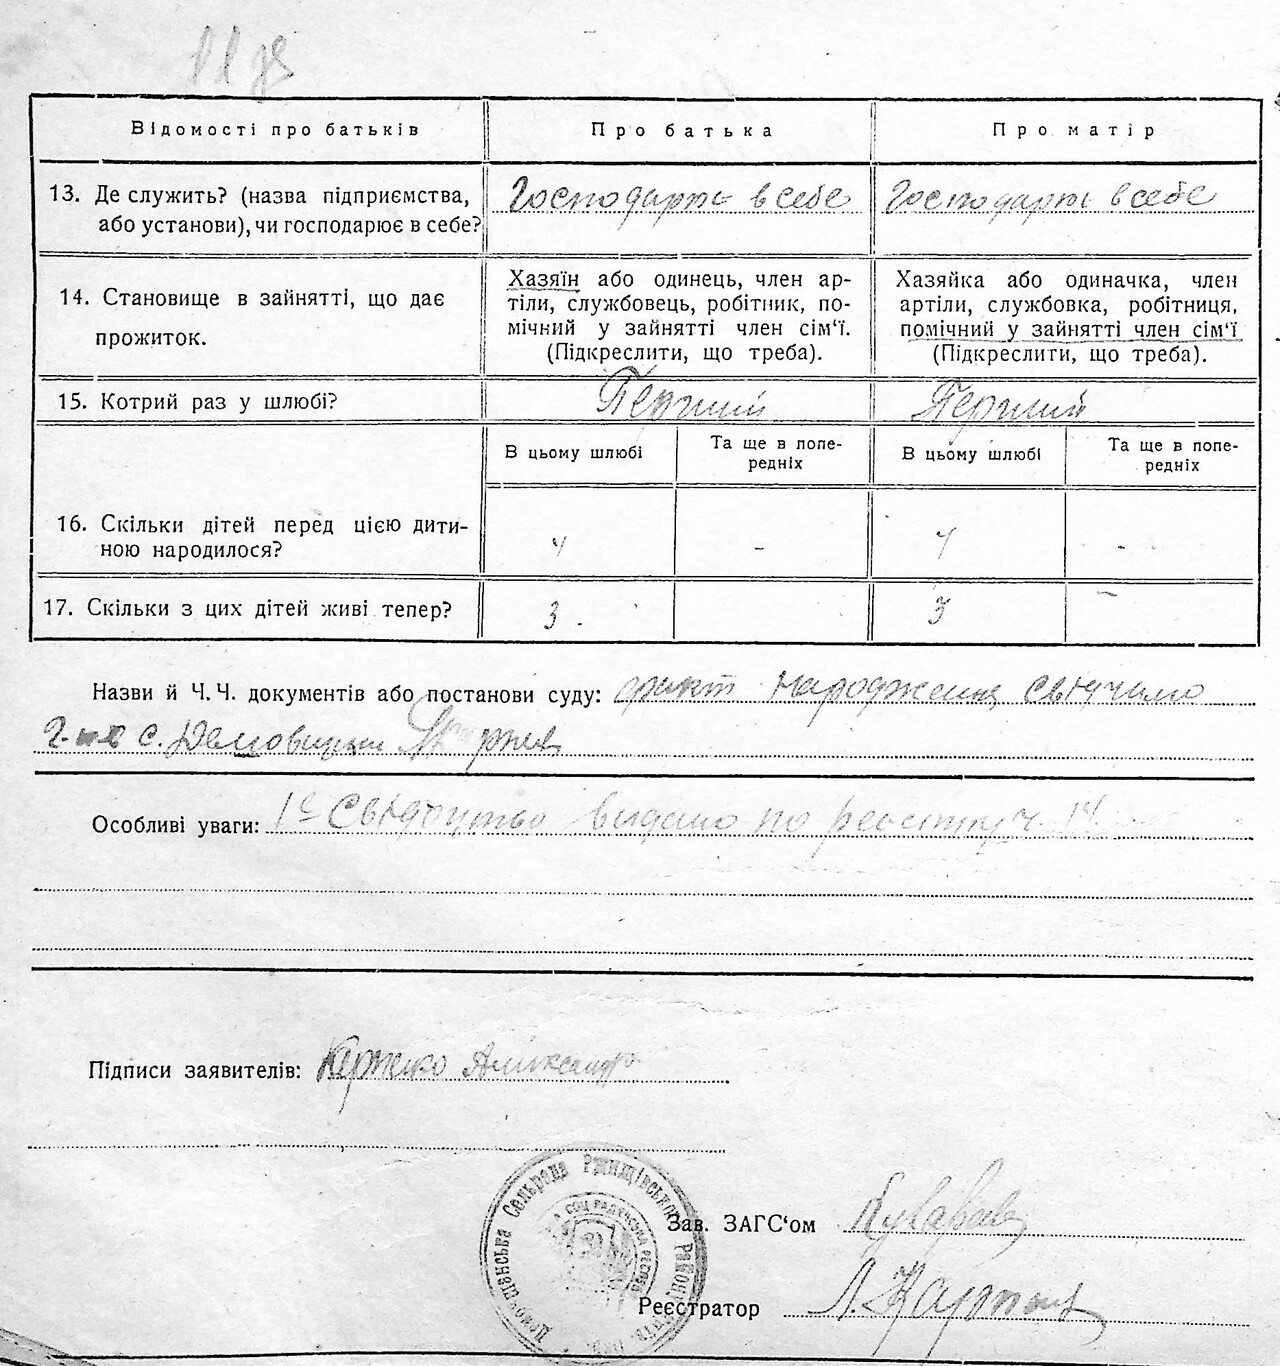 Відомості про батьків
Про батька
Про матір
13. Де служить? (назва підприємства,
або установи), чи господарює в себе?
Господарть в себе
Господарть в себе
14. Становище в зайнятті, що дає
прожиток.
Хазяїн або одинець, член ар-
тіли, службовець, робітник, по-
мічний у зайнятті член сім‘ї.
(Підкреслити, що треба).
Хазяйка або одиначка, член
артіли, службовка, робітниця,
помічний у зайнятті член сім‘ї
(Підкреслити, що треба).
15. Котрий раз у шлюбі?
Перший
Перший
В цьому шлюбі
Та ще в попе-
редніх
В цьому шлюбі
Та ще в попе-
редніх
16. Скільки дітей перед цією дити-
ною народилося?
4
-
4
-
17. Скільки з цих дітей живі тепер?
3
3
-
Назви й Ч. Ч. документів або постанови суду: факт народження свідчило
с.
Особливі уваги: Свідоцтво видано по реєстру ч. 14
Підписи заявителів: Керекко Александр
Сельрада Ржищівського Району
Зав. ЗАГС‘ом
Реєстратор